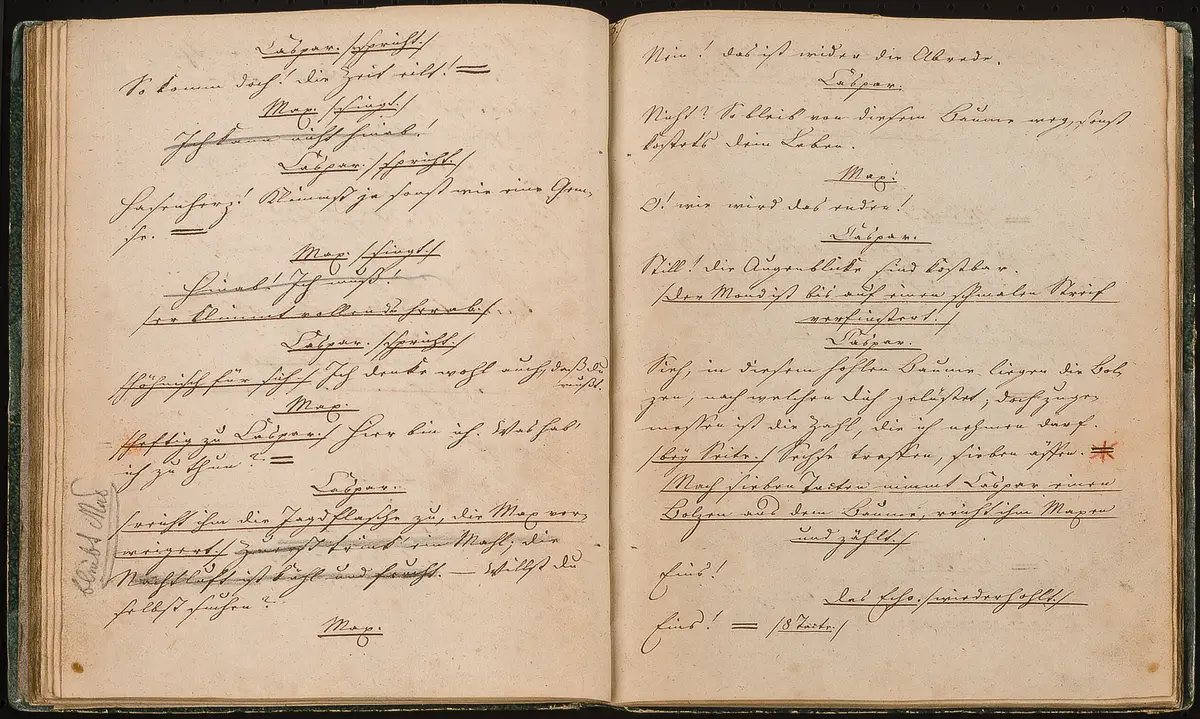 Caspar. /:spricht:/
So komm doch! die Zeit eilt! =
Max. /:singt:/
Ich kann nicht hinab!
Caspar. /:spricht:/
Hasenherz! Klimmst ja sonst wie eine Gem-
se. =
Max. /:singt:/
Hinab! Ich muß!
/:er klimmt vollends herab:/
Caspar. /:spricht:/
/:höhnisch für sich:/ Ich denke wohl auch, daß du
mußt.
Max.
/:heftig zu Caspar:/ Hier bin ich. Was hab'
ich zu thun? =
Caspar.
/:reicht ihm die Jagdflasche zu, die Max ver-
weigert:/ Zuerst trink' ein Mahl; die
Nachtluft ist kühl und feucht. — Willst du
selbst suchen?
Max.
bleibt
Nein! das ist wider die Abrede.
Caspar.
Nicht? So bleib von diesem Baume weg, sonst
kostet's dein Leben.
Max.
O! wie wird das enden!
Caspar.
Still! die Augenblicke sind kostbar.
/:der Mond ist bis auf einen schmalen Streif
verfinstert:/
Caspar.
Sieh, in diesem hohlen Baume liegen die Bol-
zen, nach welchen dich gelüstet; doch zuge-
messen ist die Zahl, die ich nehmen darf.
/:bey Seite:/ Sechse treffen, sieben äffen. =
Nach sieben Tacten nimmt Caspar einen
Bolzen aus dem Baume, reicht ihn Maxen
und zählt:/
Eins!
das Echo. /:wiederhohlt:/
Eins! = /:8 Tacte:/